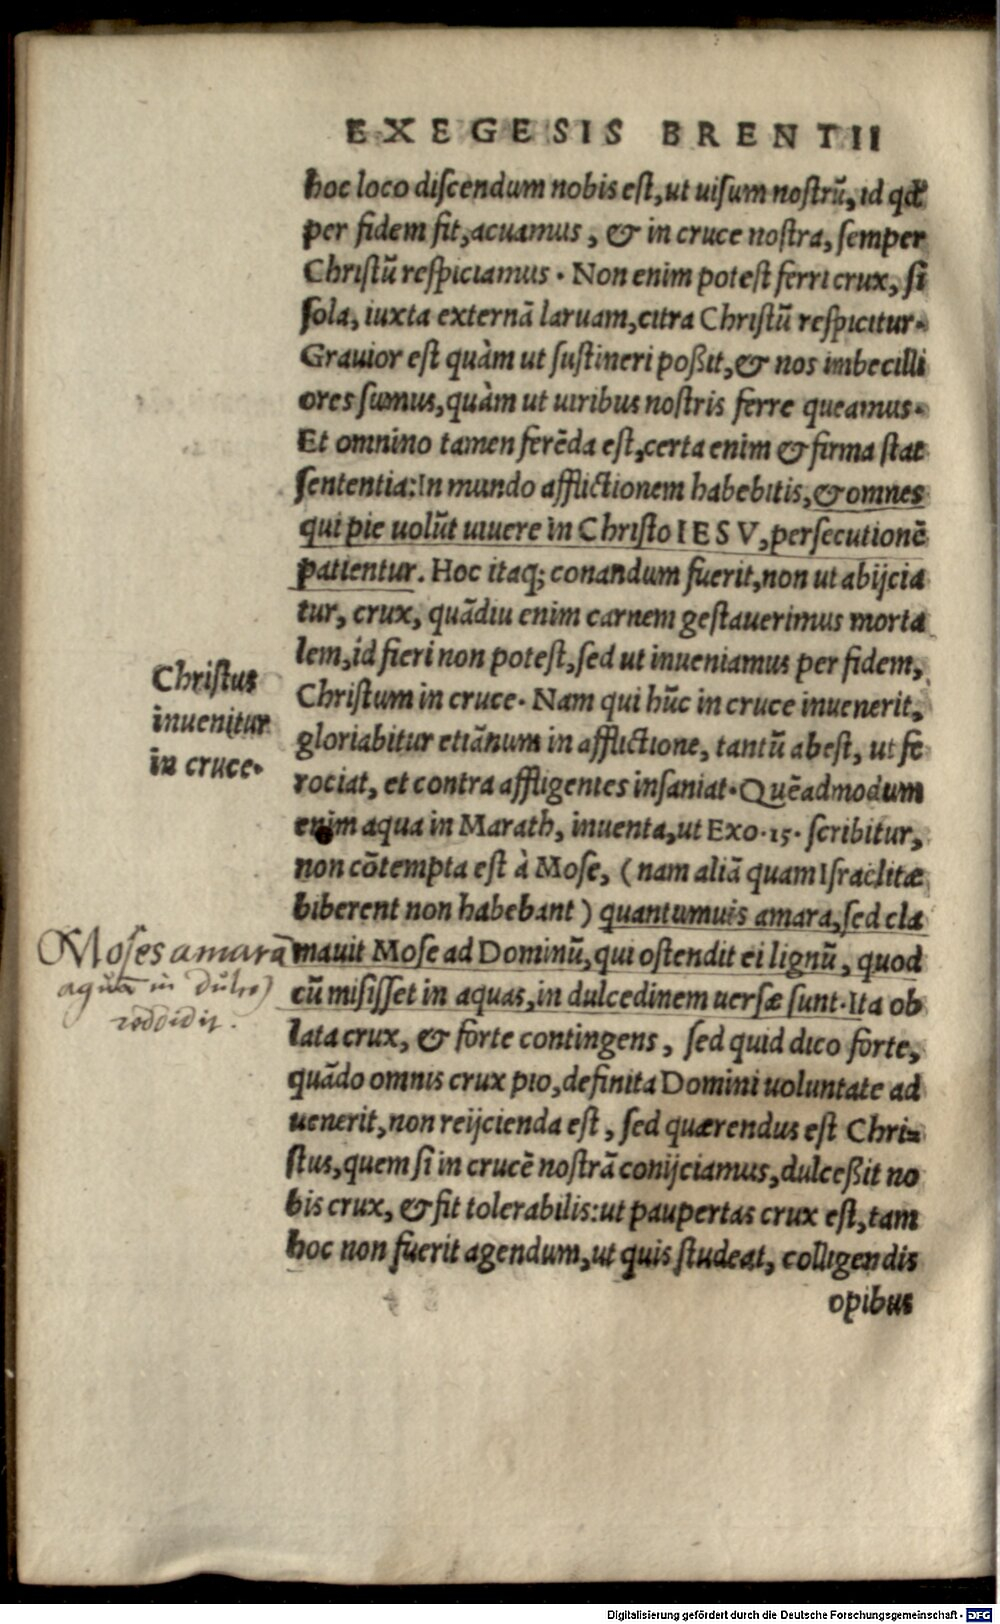 EXEGESIS BRENTII
hoc loco discendum nobis est, ut uisum nostrū, id qd
per fidem fit, acuamus, & in cruce nostra, semper
Christū respiciamus. Non enim potest ferri crux, si
sola, iuxta externā laruam, citra Christū respicitur.
Grauior est quàm ut sustineri poßit, & nos imbecilli
ores sumus, quàm ut uiribus nostris ferre queamus.
Et omnino tamen ferēda est, certa enim & firma stat
sententia: In mundo afflictionem habebitis, & omnes
qui pie uolūt uiuere in Christo IESV, persecutionē
patientur. Hoc itaq; conandum fuerit, non ut abijcia
tur, crux, quādiu enim carnem gestauerimus morta
lem, id fieri non potest, sed ut inueniamus per fidem,
Christus
inuenitur
in cruce.
Christum in cruce. Nam qui hūc in cruce inuenerit,
gloriabitur etiānum in afflictione, tantū abest, ut fe
rociat, et contra affligentes insaniat. Quēadmodum
enim aqua in Marath, inuenta, ut Exo. 15. scribitur,
non cōtempta est à Mose, (nam aliā quam Israelitæ
biberent non habebant) quantumuis amara, sed cla
Moses amarā
aquā in dulce)
reddidit.
mauit Mose ad Dominū, qui ostendit ei lignū, quod
cū misisset in aquas, in dulcedinem uersæ sunt. Ita ob
lata crux, & forte contingens, sed quid dico forte,
quādo omnis crux pio, definita Domini uoluntate ad
uenerit, non reijcienda est, sed quærendus est Chri=
stus, quem si in crucē nostrā conijciamus, dulceßit no
bis crux, & fit tolerabilis: ut paupertas crux est, tam
hoc non fuerit agendum, ut quis studeat, colligendis
opibus
Digitalisierung gefördert durch die Deutsche Forschungsgemeinschaft - DFG